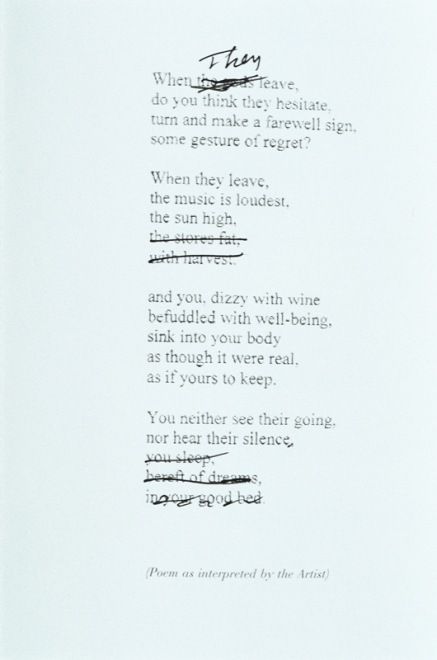 They
When the gods leave,
do you think they hesitate,
turn and make a farewell sign,
some gesture of regret?
When they leave,
the music is loudest,
the sun high,
the stores fat,
with harvest.
and you, dizzy with wine
befuddled with well-being,
sink into your body
as though it were real,
as if yours to keep.
You neither see their going,
nor hear their silence,
you sleep,
bereft of dreams,
in your good bed.
(Poem as interpreted by the Artist)